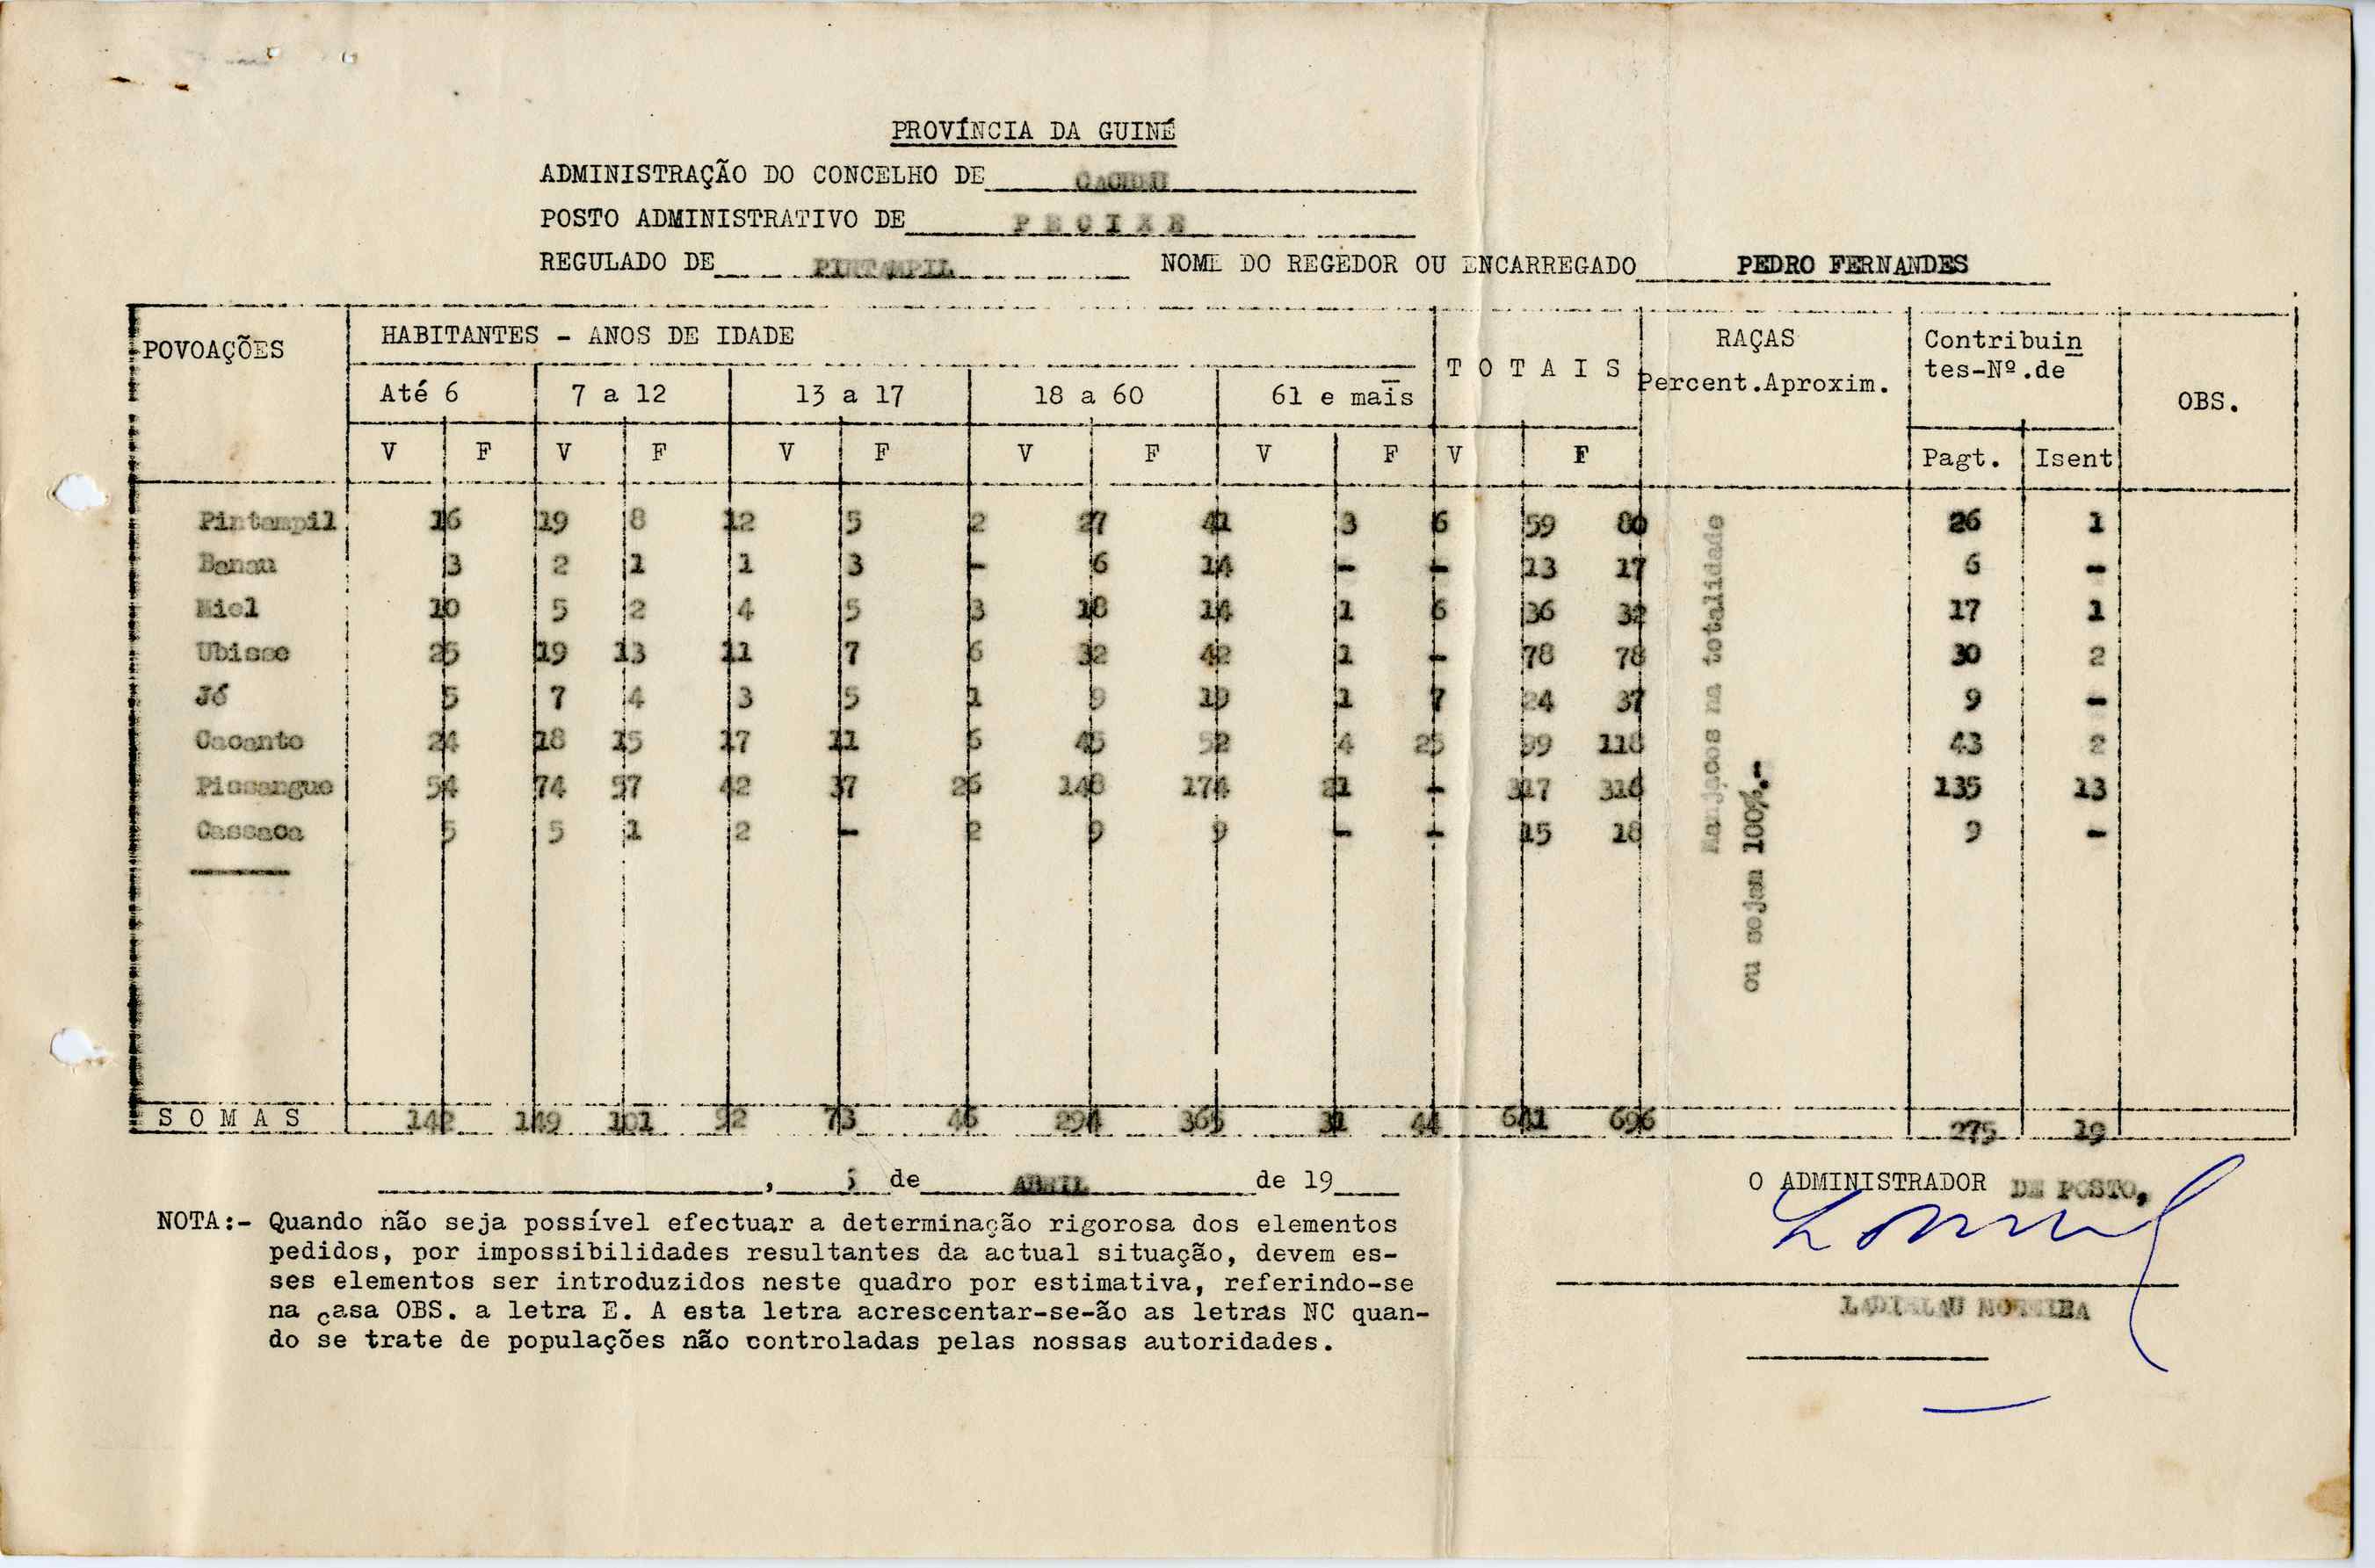 PROVÍNCIA DA GUINÉ
ADMINISTRAÇÃO DO CONCELHO DE CACHEU
POSTO ADMINISTRATIVO DE PECIXE
REGULADO DE PINTAMPIL NOME DO REGEDOR OU ENCARREGADO PEDRO FERNANDES
POVOAÇÕES HABITANTES - ANOS DE IDADE TOTAIS RAÇAS Percent.Aproxim. Contribuin tes-Nº.de OBS.
Até 6 7 a 12 13 a 17 18 a 60 61 e mais
V F V F V F V F V F V F Pagt. Isent
Pintampil 16 19 8 12 5 2 27 41 3 6 59 80 26 1
Banau 3 2 1 1 3 - 6 14 - - 13 17 6 -
Miel 10 5 2 4 5 3 18 14 1 6 36 32 17 1
Ubisse 25 19 13 11 7 6 32 42 1 - 78 78 30 2
Jó 5 7 4 3 5 1 9 19 1 7 24 37 9 -
Cacanto 24 18 15 17 11 6 45 52 4 25 99 118 43 2
Pissangue 54 74 57 42 37 26 148 174 21 - 317 316 135 13
Cassaca 5 5 1 2 - 2 9 9 - - 15 18 9 -
Manjacos na totalidade
ou sejam 100%.-
SOMAS 142 149 101 92 73 46 294 365 31 44 641 696 275 19
, 5 de ABRIL de 19
O ADMINISTRADOR DE POSTO,
NOTA:- Quando não seja possível efectuar a determinação rigorosa dos elementos
pedidos, por impossibilidades resultantes da actual situação, devem es-
ses elementos ser introduzidos neste quadro por estimativa, referindo-se
na casa OBS. a letra E. A esta letra acrescentar-se-ão as letras NC quan-
do se trate de populações não controladas pelas nossas autoridades.
LADISLAU MOREIRA